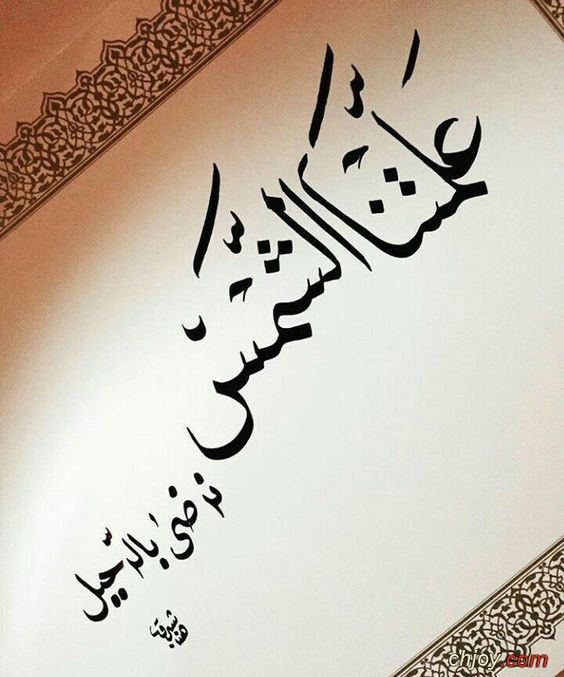 عَلَّمَتنا الشَّمسُ
نرضى بَالرّحيل
chjoy.com